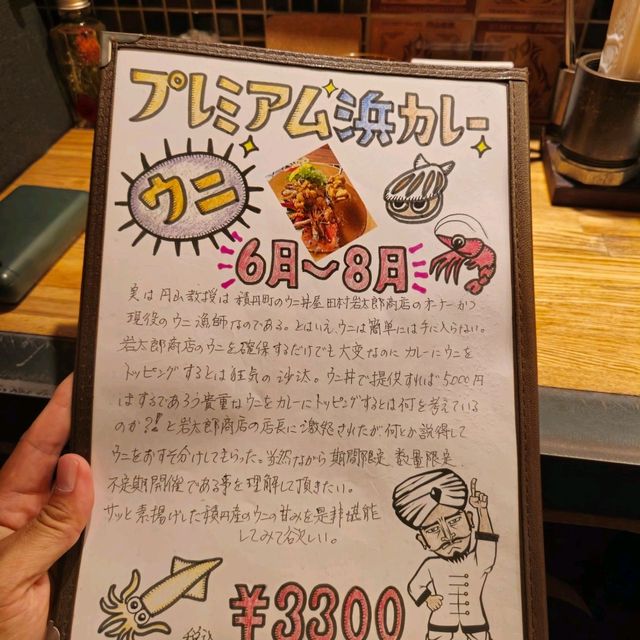 プレミアム浜カレー
ウニ
6月〜8月
実は円山教授は積丹町のウニ丼屋田村岩太郎商店のオーナーかつ
現役のウニ漁師なのである。とはいえウニは簡単には手に入らない。
岩太郎商店のウニを確保するだけでも大変なのにカレーにウニを
トッピングするとは狂気の沙汰。ウニ丼で提供すれば5000円
はするであろう貴重なウニをカレーにトッピングするとは何を考えている
のか?!と岩太郎商店の店長に激怒されたが何とか説得して
ウニをおすそ分けしてもらった。当然ながら期間限定 数量限定
不定期開催である事を理解して頂きたい。
サッと素揚げした積丹産のウニの甘みを是非堪能
してみて欲しい。
税込
¥3300